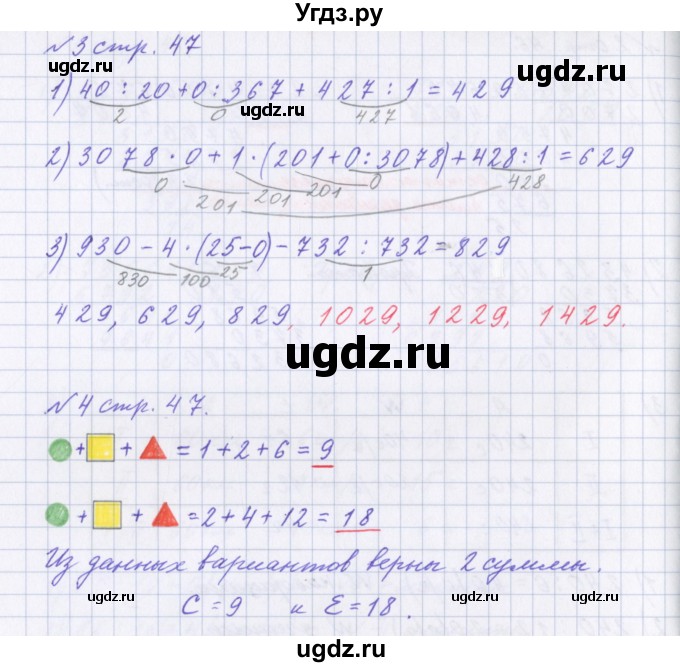 Угдз.ру
№3 стр. 47
ugdz.ru
ugdz.ru
ugdz.ru
1) 40 : 20 + 0 : 367 + 427 : 1 = 429
2 0 427
2) 3078 · 0 + 1 · (201 + 0 : 3078) + 428 : 1 = 629
0 201 201 0 428
201
3) 930 - 4 · (25 - 0) - 732 : 732 = 829
830 100 25 1
429, 629, 829, 1029, 1229, 1429.
ugdz.ru
№4 стр. 47.
+ + = 1 + 2 + 6 = 9
ugdz.ru
+ + = 2 + 4 + 12 = 18
Из данных вариантов верны 2 суммы.
ugdz.ru
ugdz.ru
C = 9 и E = 18.
ugdz.ru